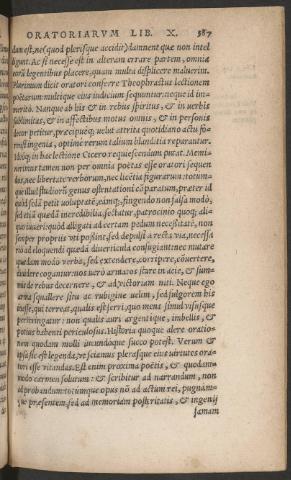 ORATORIARVM LIB. X. 387
dam est, ne (quod plerisque accidit) damnent quæ non intel
ligunt. Ac si necesse est in alteram errare partem, omnia
eorū legentibus placere, quam multa displicere maluerim.
Plurimum dicit oratori conferre Theophrastus lectionem
poetarum, multique eius iudicium sequuntur, neque id im-
merito. Nanque ab his & in rebus spiritus, & in verbis
sublimitas, & in affectibus motus omnis, & in personis
decor petitur, præcipueq; velut attrita quotidiano actu fo-
rensi ingenia, optime rerum talium blanditia reparantur.
Ideoq; in hac lectione Cicero requiescendum putat. Memi-
nerimus tamen non per omnia poetas esse oratori sequen
dos, nec libertate verborum, nec licētia figurarum: totum-
que illud studiorū genus ostentationi cōparatum, præter id
quòd solā petit voluptatē, eamq; fingendo non falsa modò,
sed etiā quædā incredibilia, sectatur, patrocinio quoq; ali-
quo iuuari: quòd alligati ad certam pedum necessitatē, non
semper propriis vti possint, sed depulsi à recta via, necessa
riò ad eloquendi quædā diuerticula confugiant: nec mutare
quædam modò verba, sed extendere, corripere, cōuertere,
diuidere cogantur: nos verò armatos stare in acie, & sum-
mis de rebus decernere, & ad victoriam niti. Neque ego
arma squallere situ ac rubigine velim, sed fulgorem his
inesse, qui terreat, qualis est ferri, quo mens simul visusque
perstringatur: non qualis auri argentique, imbellis, &
potius habenti periculosus. Historia quoque alere oratio-
nem quodam molli iucundoque succo potest. Verum &
ipsa sic est legenda, vt sciamus plerasque eius virtutes orato-
tori esse vitandas. Est enim proxima poetis, & quodam-
modo carmen solutum: & scribitur ad narrandum, non
ad probandum: totumque opus nō ad actum rei, pugnam-
que præsentem, sed ad memoriam posteritatis, & ingenij
famam